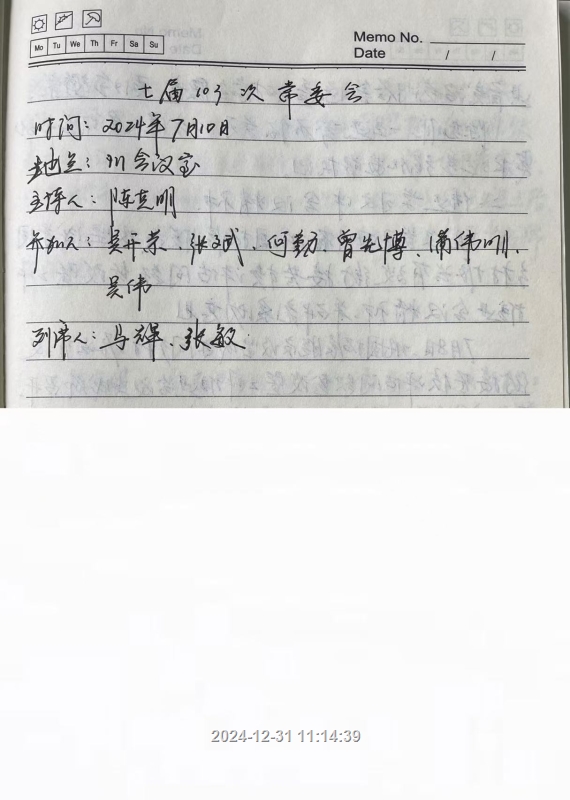 Mo Tu We Th Fr Sa Su
Memo No.
Date / /
七届103次常委会
时间：2024年7月10日
地点：川会议室
主持人：陈克明
参加人：吴开荣、张文武、何勤、曾先博、蒲伟刚、
吴伟
列席人：马辉、张敏
2024-12-31 11:14:39